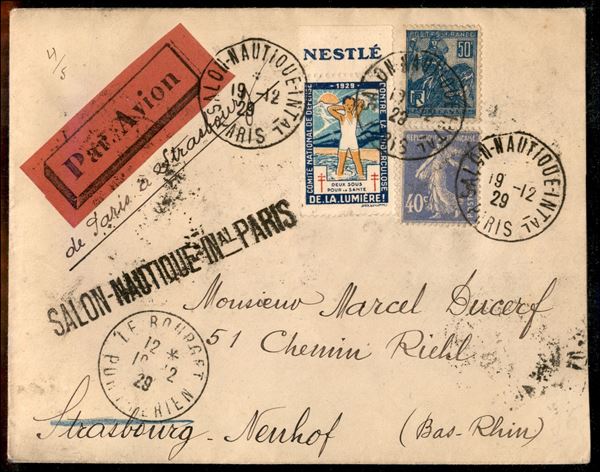 4/5
Par Avion
de Paris à Strasbourg
SALON-NAUTIQUE-INTAL
19-12
29
PARIS
NESTLÉ
1929
COMITÉ NATIONAL DE DÉFENSE
CONTRE LA TUBERCULOSE
DEUX SOUS
POUR LA SANTÉ
DE.LA.LUMIÈRE!
POSTES-FRANCE
50c
SALON-NAUTIQUE-INTAL
19-12
29
PARIS
40c
SALON-NAUTIQUE-INTAL
19-12
29
PARIS
SALON-NAUTIQUE-INAL PARIS
Monsieur Marcel Ducerf
51 Chemin Riehl
Strasbourg-Neuhof (Bas-Rhin)
LE BOURGET
12 *
12
29
PORT AERIEN